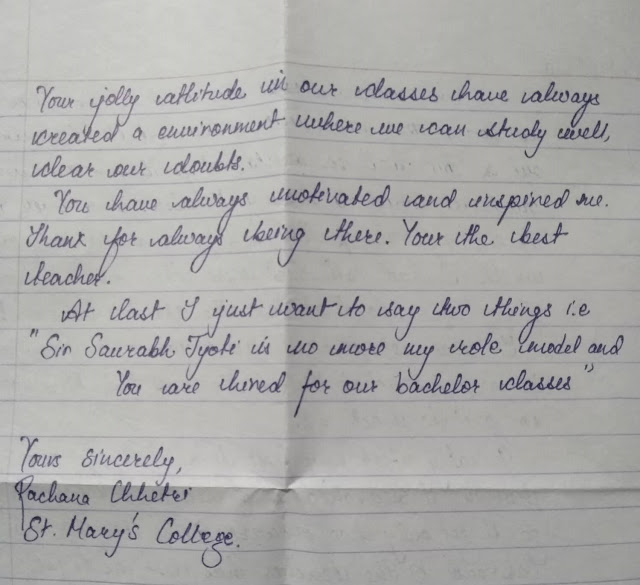 Your jolly attitude in our classes have always
created a environment where we can study well,
clear our doubts.
You have always motivated and inspired me.
Thank for always being there. Your the best
teacher.
At last I just want to say two things i.e
"Sir Saurabh Jyoti is no more my role model and
You are hired for our bachelor classes"
Yours Sincerely,
Rachana Chhetri
St. Mary's College.